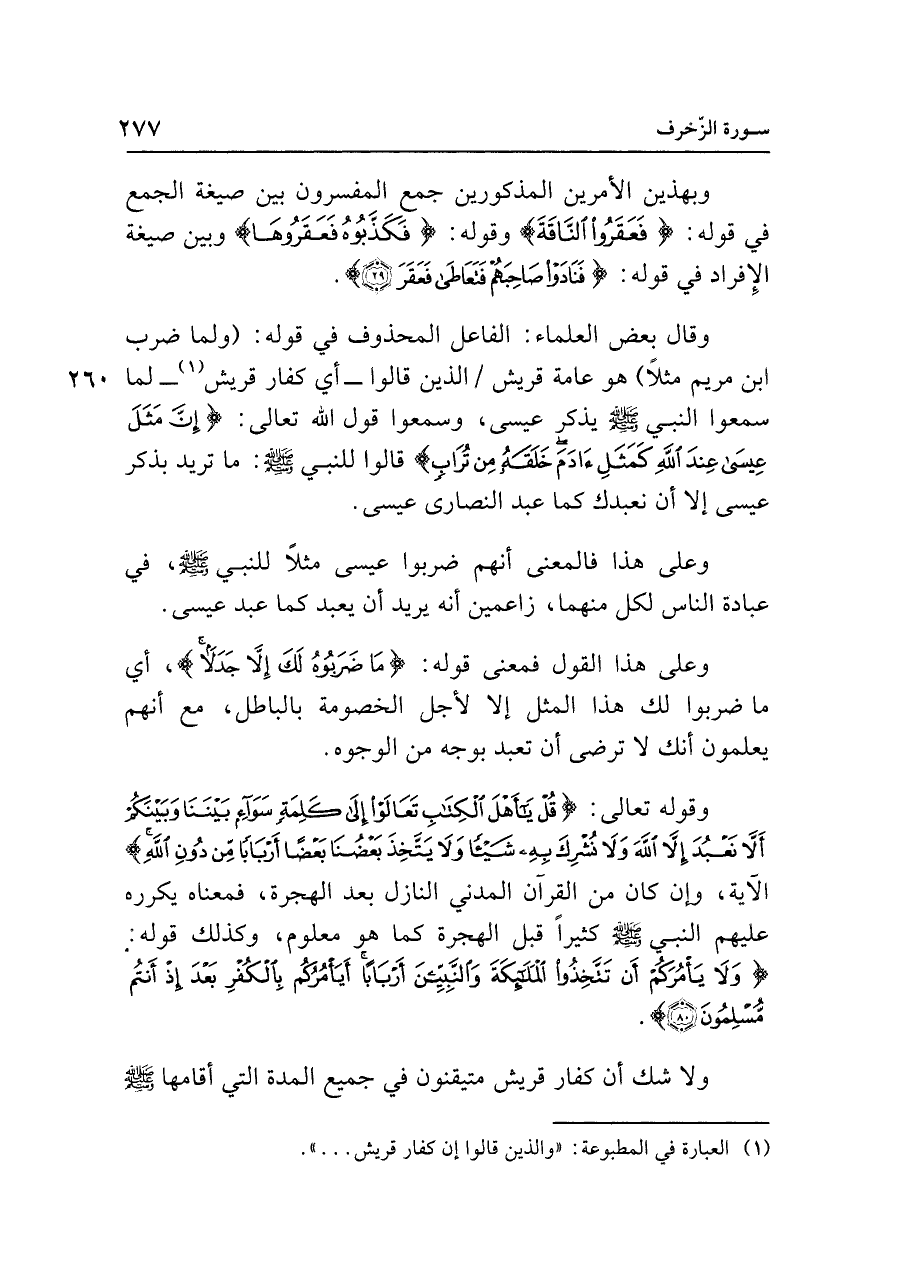 سورة الزّخرف ٢٧٧
وبهذين الأمرين المذكورين جمع المفسرون بين صيغة الجمع
في قوله: ﴿ فَعَقَرُوا۟ ٱلنَّاقَةَ﴾ وقوله: ﴿ فَكَذَّبُوهُ فَعَقَرُوهَا﴾ وبين صيغة
الإفراد في قوله: ﴿ فَنَادَوْا۟ صَاحِبَهُمْ فَتَعَاطَىٰ فَعَقَرَ ٢٩﴾ .
وقال بعض العلماء: الفاعل المحذوف في قوله: (ولما ضرب
ابن مريم مثلاً) هو عامة قريش / الذين قالوا ـ أي كفار قريش(١) ـ لما ٢٦٠
سمعوا النبي ﷺ يذكر عيسى، وسمعوا قول الله تعالى: ﴿ إِنَّ مَثَلَ
عِيسَىٰ عِندَ ٱللَّهِ كَمَثَلِ ءَادَمَ ۖ خَلَقَهُۥ مِن تُرَابٍ﴾ قالوا للنبي ﷺ: ما تريد بذكر
عيسى إلا أن نعبدك كما عبد النصارى عيسى.
وعلى هذا فالمعنى أنهم ضربوا عيسى مثلاً للنبي ﷺ، في
عبادة الناس لكل منهما، زاعمين أنه يريد أن يعبد كما عبد عيسى.
وعلى هذا القول فمعنى قوله: ﴿ مَا ضَرَبُوهُ لَكَ إِلَّا جَدَلًۢا ۚ﴾، أي
ما ضربوا لك هذا المثل إلا لأجل الخصومة بالباطل، مع أنهم
يعلمون أنك لا ترضى أن تعبد بوجه من الوجوه.
وقوله تعالى: ﴿ قُلْ يَـٰٓأَهْلَ ٱلْكِتَـٰبِ تَعَالَوْا۟ إِلَىٰ كَلِمَةٍ سَوَآءٍۭ بَيْنَنَا وَبَيْنَكُمْ
أَلَّا نَعْبُدَ إِلَّا ٱللَّهَ وَلَا نُشْرِكَ بِهِۦ شَيْـًٔا وَلَا يَتَّخِذَ بَعْضُنَا بَعْضًا أَرْبَابًا مِّن دُونِ ٱللَّهِ ۚ﴾
الآية، وإن كان من القرآن المدني النازل بعد الهجرة، فمعناه يكرره
عليهم النبي ﷺ كثيراً قبل الهجرة كما هو معلوم، وكذلك قوله:
﴿ وَلَا يَأْمُرَكُمْ أَن تَتَّخِذُوا۟ ٱلْمَلَـٰٓئِكَةَ وَٱلنَّبِيِّـۧنَ أَرْبَابًا ۗ أَيَأْمُرُكُم بِٱلْكُفْرِ بَعْدَ إِذْ أَنتُم
مُّسْلِمُونَ ٨٠﴾ .
ولا شك أن كفار قريش متيقنون في جميع المدة التي أقامها ﷺ
(١) العبارة في المطبوعة: «والذين قالوا إن كفار قريش...».